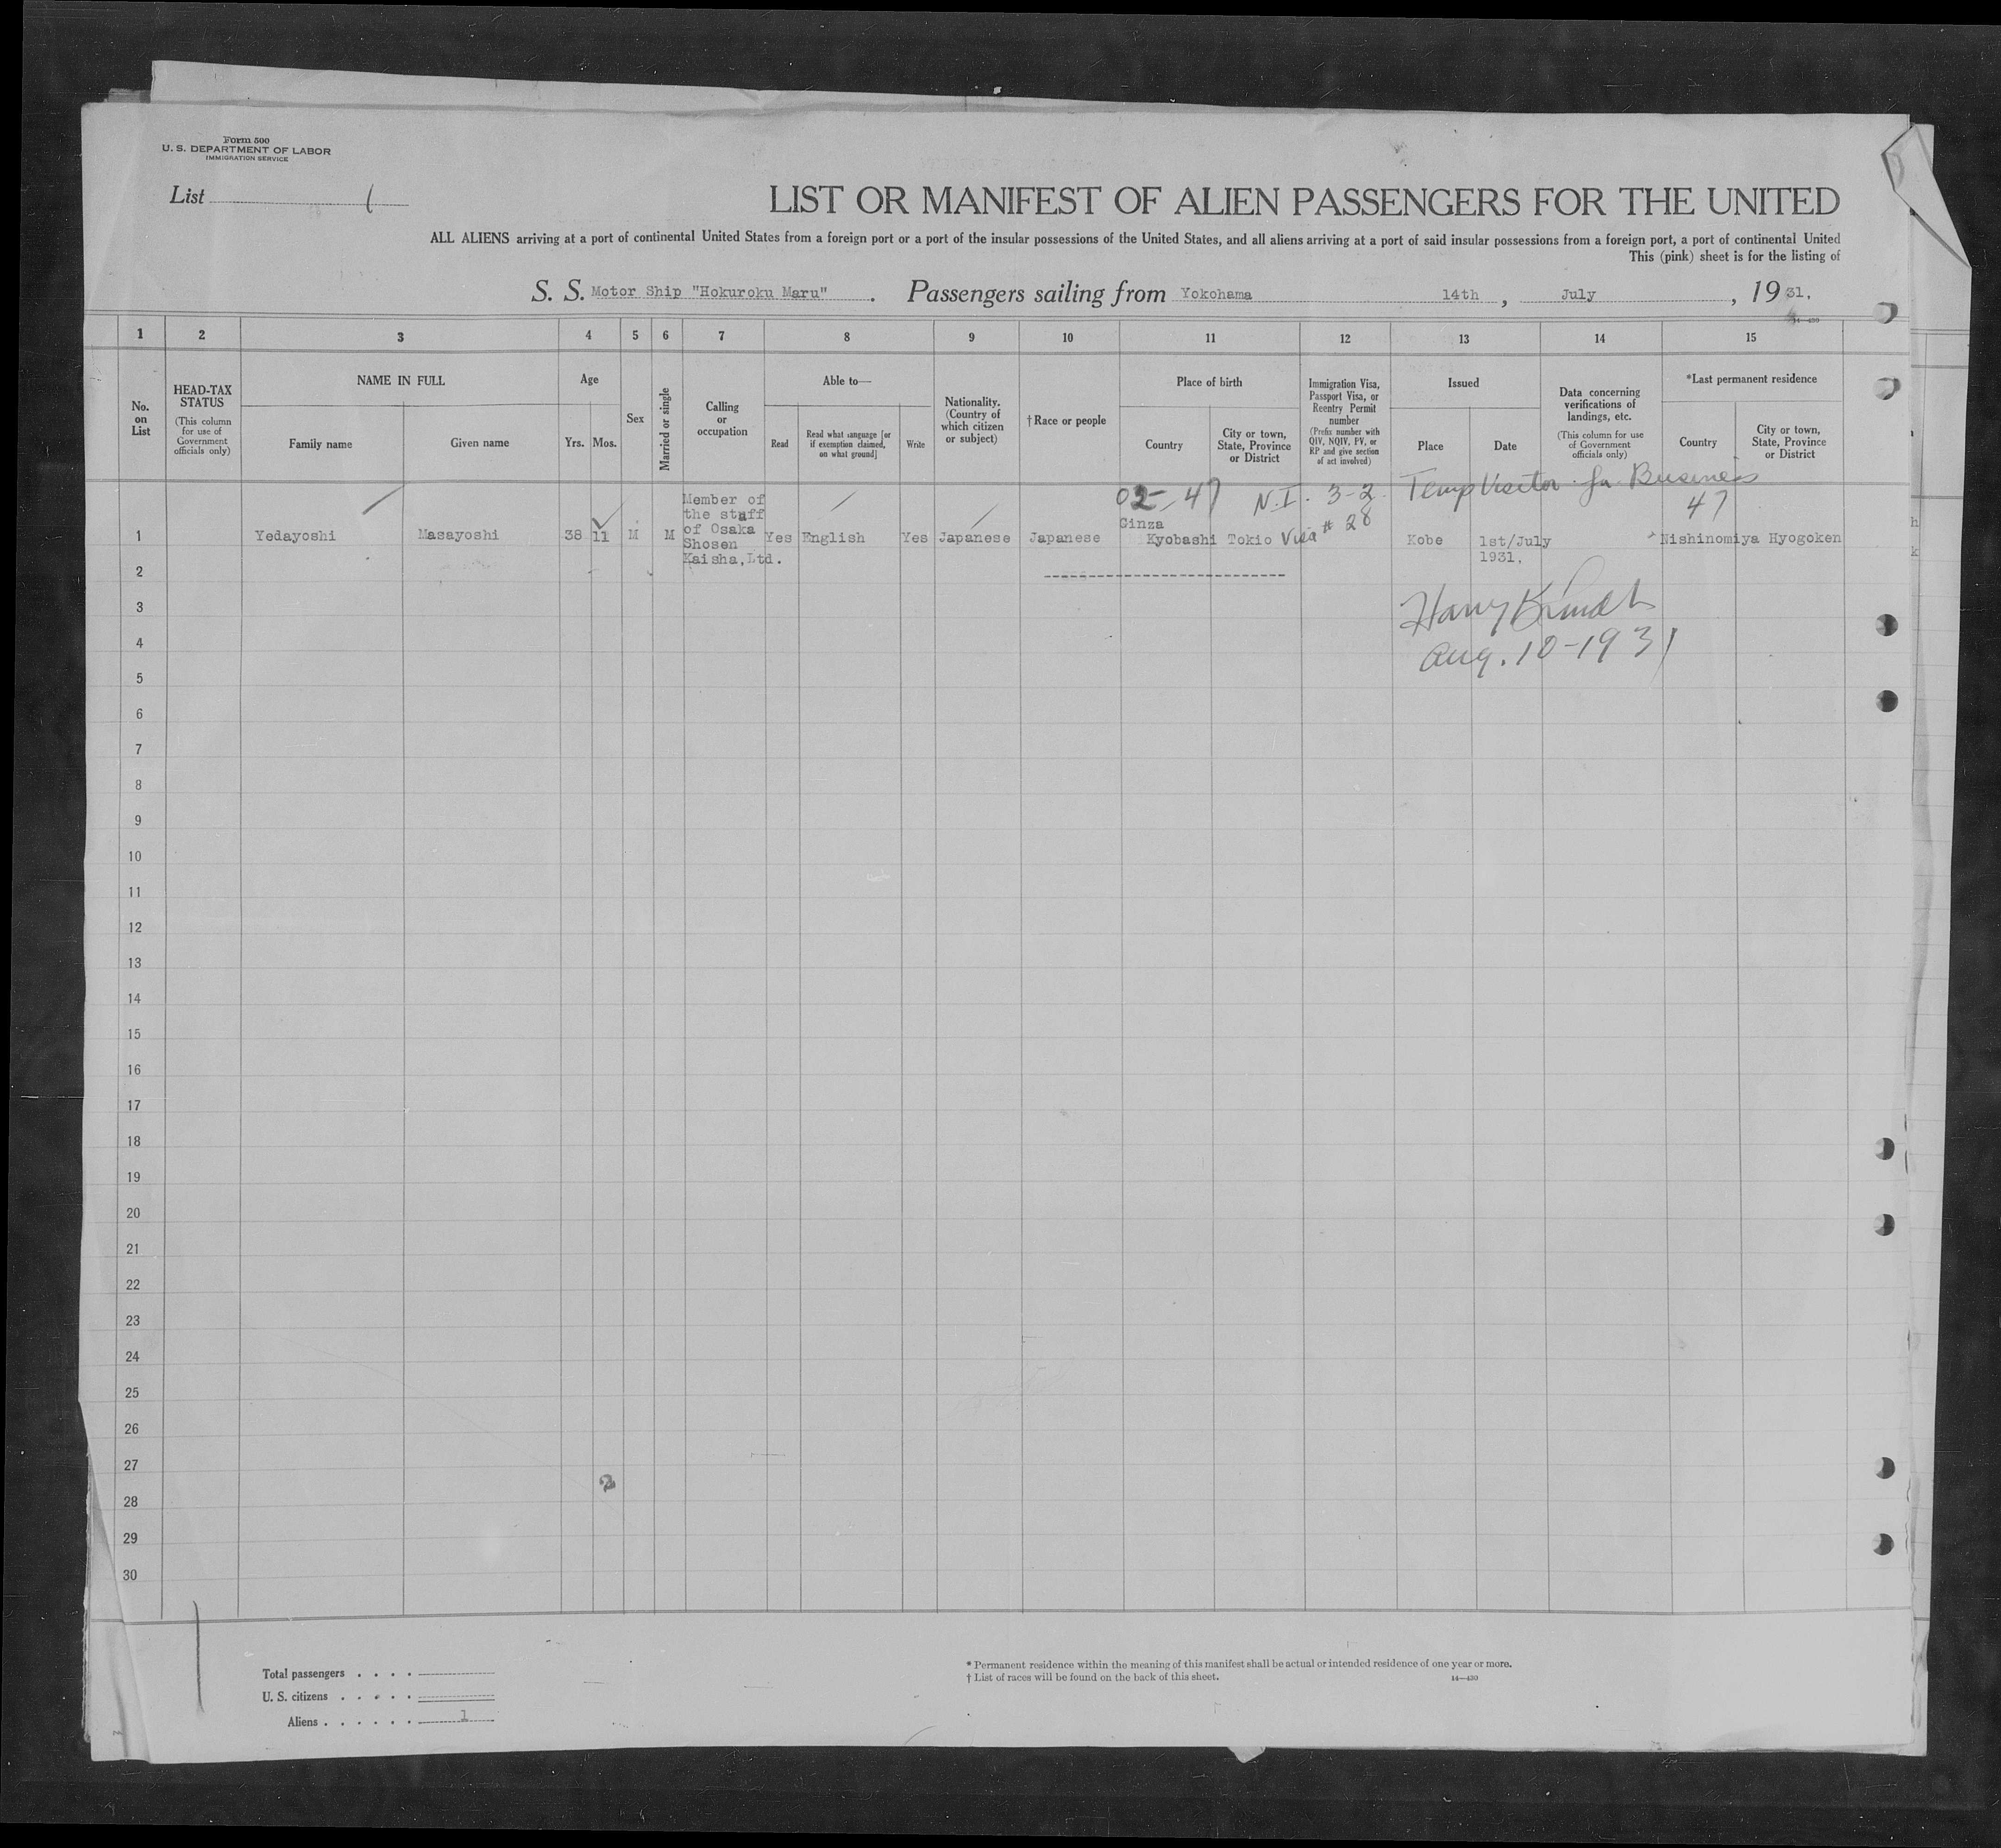 Form 500
U. S. DEPARTMENT OF LABOR
IMMIGRATION SERVICE
List 1
LIST OR MANIFEST OF ALIEN PASSENGERS FOR THE UNITED
ALL ALIENS arriving at a port of continental United States from a foreign port or a port of the insular possessions of the United States, and all aliens arriving at a port of said insular possessions from a foreign port, a port of continental United
This (pink) sheet is for the listing of
S. S. Motor Ship "Hokuroku Maru". Passengers sailing from Yokohama 14th, July, 1931.
14—430
1 2 3 4 5 6 7 8 9 10 11 12 13 14 15
No. on List
HEAD-TAX STATUS
(This column for use of Government officials only)
NAME IN FULL
Family name
Given name
Age
Yrs.
Mos.
Sex
Married or single
Calling or occupation
Able to—
Read
Read what language [or if exemption claimed, on what ground]
Write
Nationality. (Country of which citizen or subject)
†Race or people
Place of birth
Country
City or town, State, Province or District
Immigration Visa, Passport Visa, or Reentry Permit number
(Prefix number with QIV, NQIV, PV, or RP and give section of act involved)
Issued
Place
Date
Data concerning verifications of landings, etc.
(This column for use of Government officials only)
*Last permanent residence
Country
City or town, State, Province or District
02- 47 N.I. 3-2 Temp Visitor for Business
47
1 Yedayoshi Masayoshi 38 11 M M Member of the staff of Osaka Shosen Kaisha,Ltd. Yes English Yes Japanese Japanese Ginza Kyobashi Tokio Visa # 28 Kobe 1st/July 1931. Nishinomiya Hyogoken
2
3 Harry
4 Aug. 10-1931
5
6
7
8
9
10
11
12
13
14
15
16
17
18
19
20
21
22
23
24
25
26
27
2
28
29
30
Total passengers . . . .
U. S. citizens . . . . .
Aliens . . . . . . 1
* Permanent residence within the meaning of this manifest shall be actual or intended residence of one year or more.
† List of races will be found on the back of this sheet.
14—430